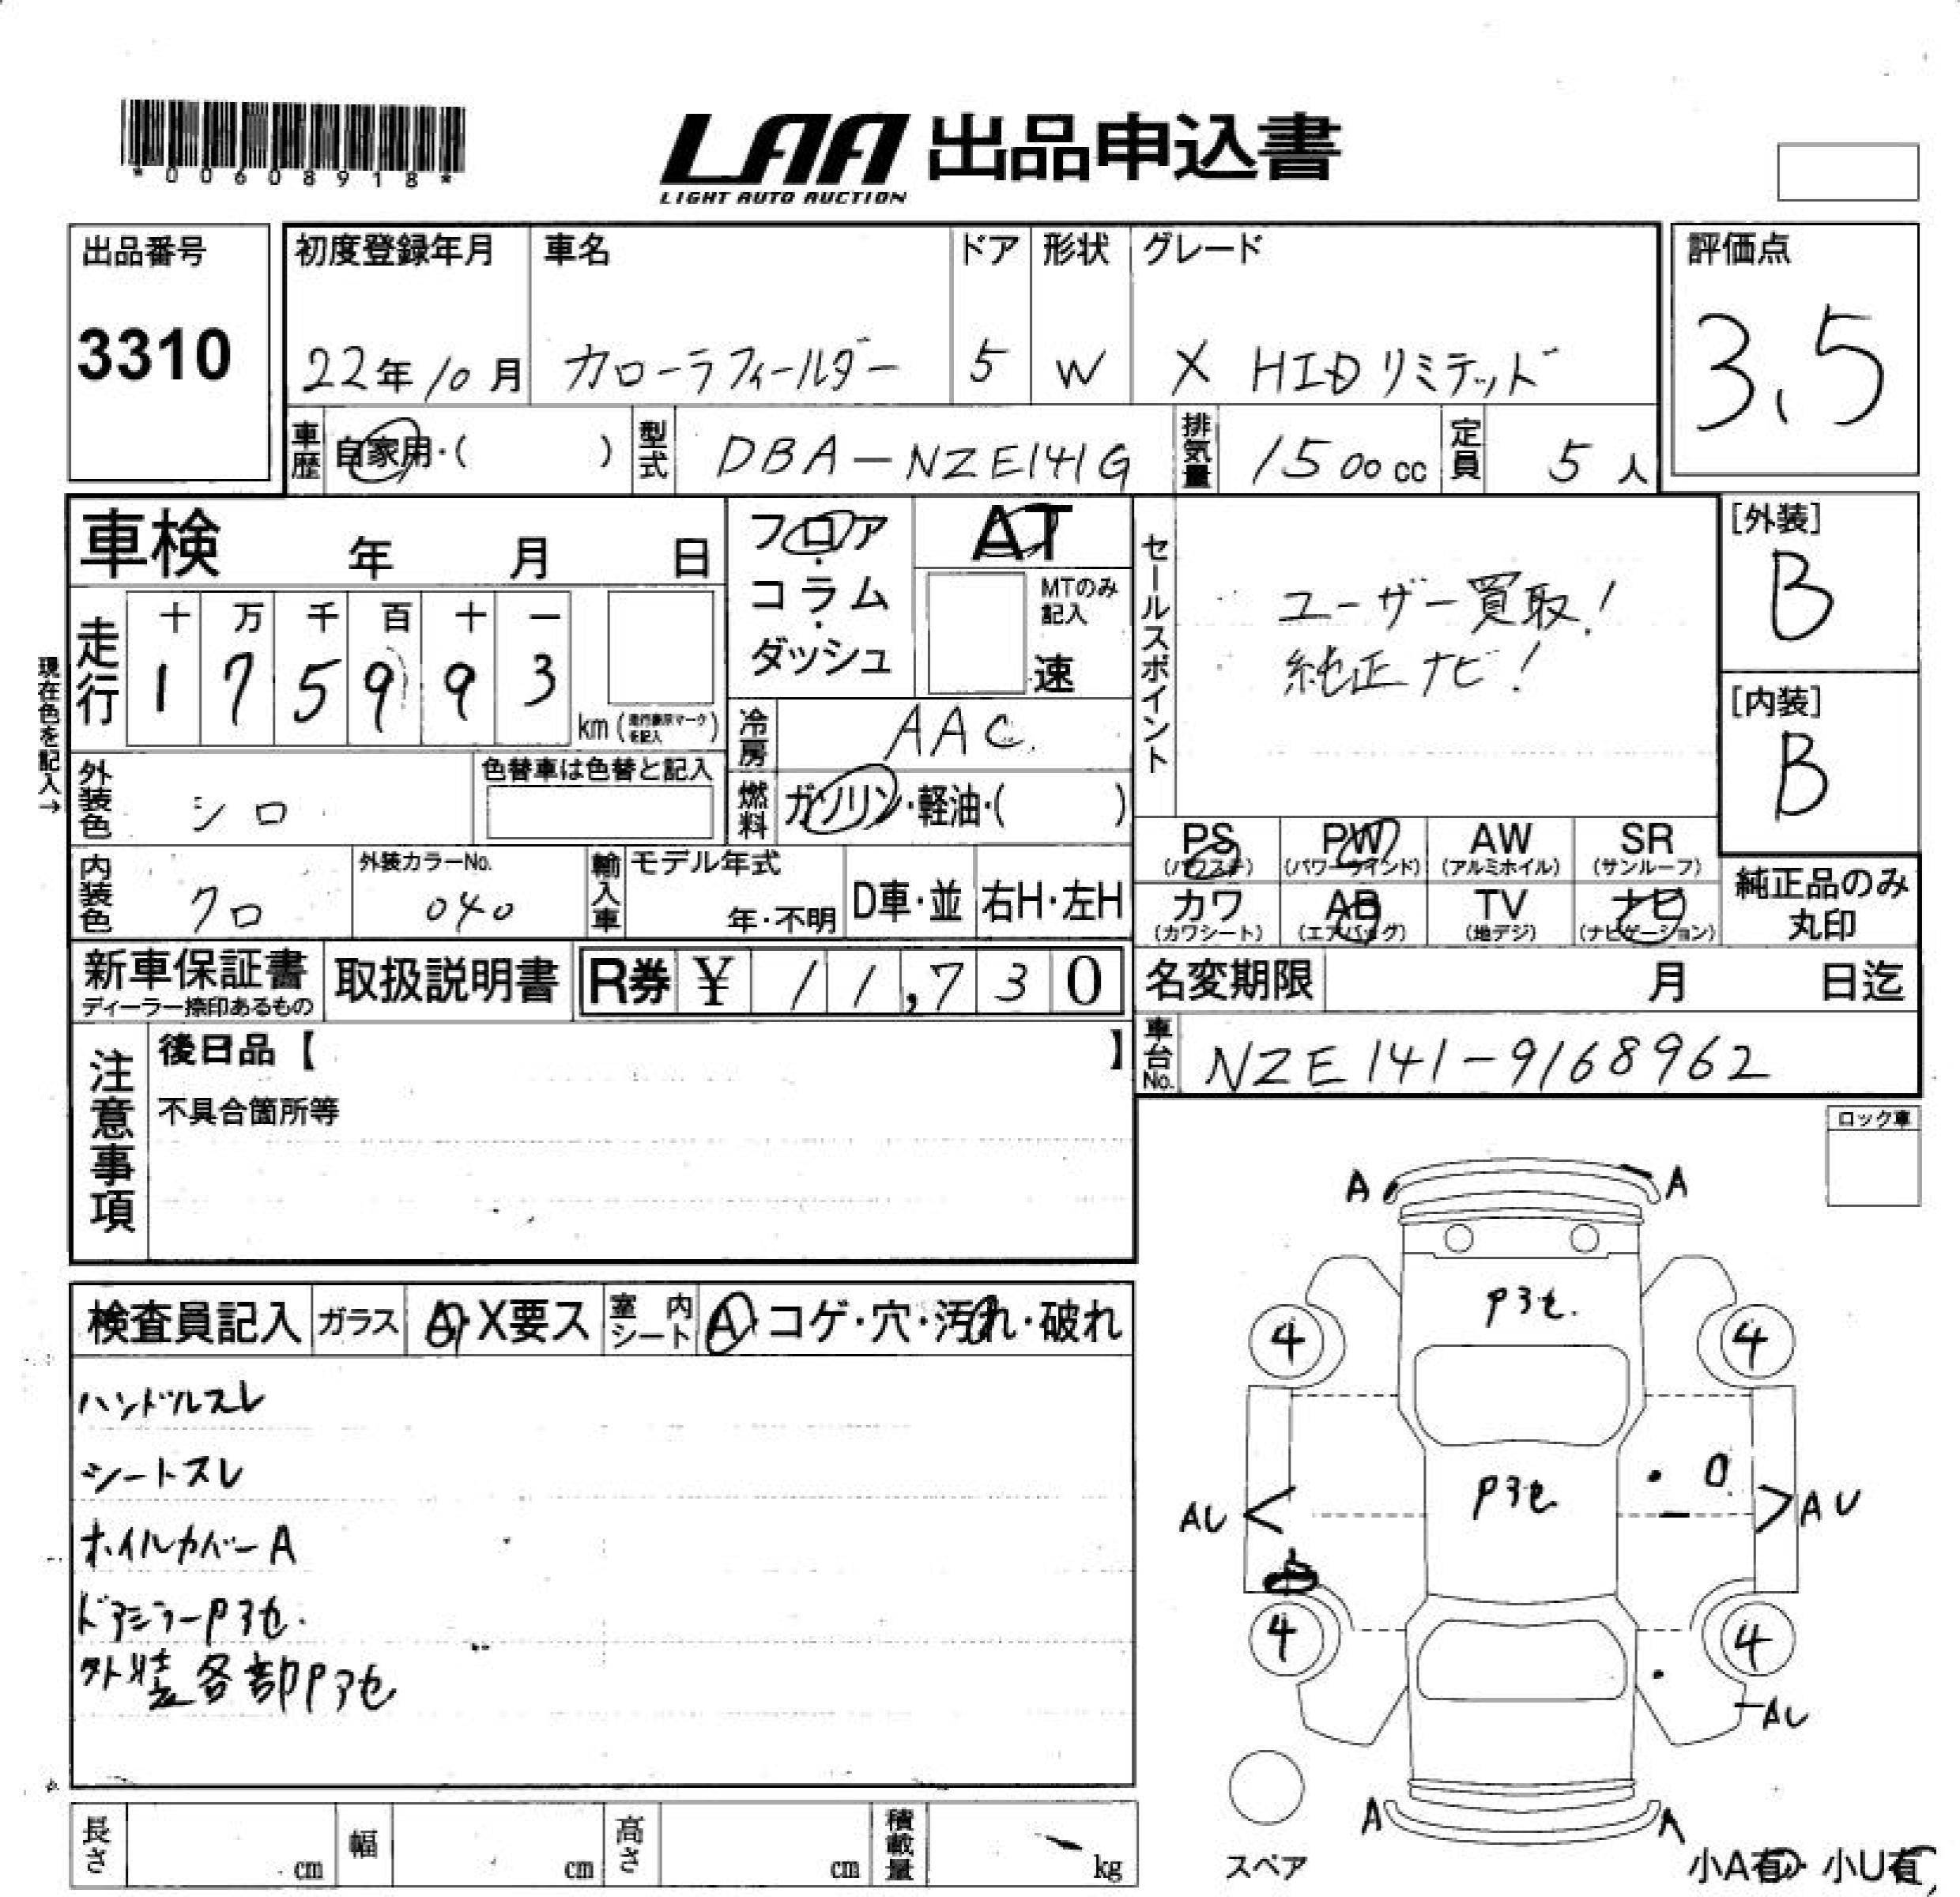 *00608918*
LAA 出品申込書
LIGHT AUTO AUCTION
出品番号
3310
初度登録年月
22年10月
車名
カローラフィールダー
ドア
5
形状
W
グレード
X HIDリミテッド
評価点
3.5
車歴
自家用・( )
型式
DBA-NZE141G
排気量
1500cc
定員
5人
車検 年 月 日
フロア・コラム・ダッシュ
AT
MTのみ記入
速
セールスポイント
ユーザー買取!
純正ナビ!
[外装]
B
[内装]
B
現在色を記入→
走行
十 万 千 百 十 一
1 7 5 9 9 3
km (走行表示マークを記入)
冷房
AAC
外装色
シロ
色替車は色替と記入
燃料
ガソリン・軽油・( )
PS
(パワステ)
PW
(パワーウインド)
AW
(アルミホイル)
SR
(サンルーフ)
カワ
(カワシート)
AB
(エアバッグ)
TV
(地デジ)
ナビ
(ナビゲーション)
純正品のみ
丸印
内装色
クロ
外装カラーNo.
040
輸入車
モデル年式
年・不明
D車・並
右H・左H
新車保証書
ディーラー捺印あるもの
取扱説明書
R券 ¥ 11,730
名変期限 月 日迄
車台No.
NZE141-9168962
注意事項
後日品【 】
不具合箇所等
ロック車
検査員記入
ガラス
A・X要ス
室内シート
A・コゲ・穴・汚れ・破れ
ハンドルスレ
シートスレ
ホイルカバーA
ドアミラーPアセ.
外装各部Pアセ
A A
Pアセ.
4 4
Pアセ
AU AU
4 4
AU
A A
スペア
小A有・小U有
長さ cm
幅 cm
高さ cm
積載量 kg